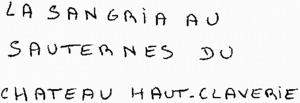 LA SANGRIA AU
SAUTERNES DU
CHATEAU HAUT-CLAVERIE